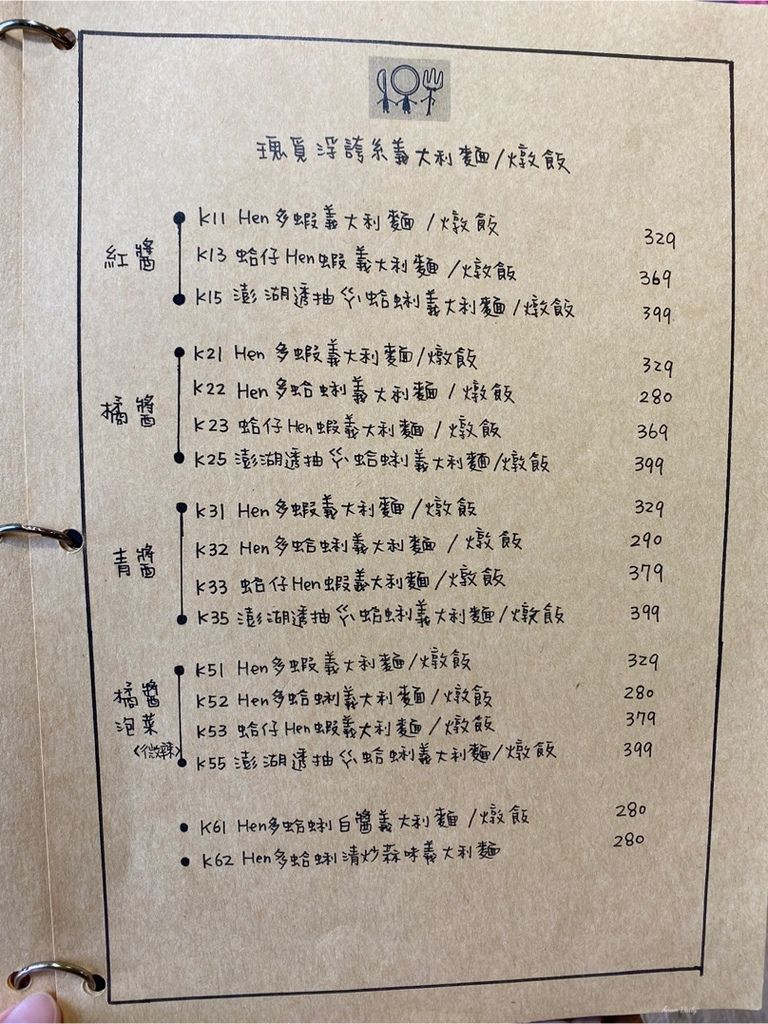 瑰覓浮誇系義大利麵/燉飯
紅醬
K11 Hen多蝦義大利麵/燉飯 329
K13 蛤仔Hen蝦義大利麵/燉飯 369
K15 澎湖透抽公蛤蜊義大利麵/燉飯 399
橘醬
K21 Hen多蝦義大利麵/燉飯 329
K22 Hen多蛤蜊義大利麵/燉飯 280
K23 蛤仔Hen蝦義大利麵/燉飯 369
K25 澎湖透抽公蛤蜊義大利麵/燉飯 399
青醬
K31 Hen多蝦義大利麵/燉飯 329
K32 Hen多蛤蜊義大利麵/燉飯 290
K33 蛤仔Hen蝦義大利麵/燉飯 379
K35 澎湖透抽公蛤蜊義大利麵/燉飯 399
橘醬
泡菜
<微辣>
K51 Hen多蝦義大利麵/燉飯 329
K52 Hen多蛤蜊義大利麵/燉飯 280
K53 蛤仔Hen蝦義大利麵/燉飯 379
K55 澎湖透抽公蛤蜊義大利麵/燉飯 399
K61 Hen多蛤蜊白醬義大利麵/燉飯 280
K62 Hen多蛤蜊清炒蒜味義大利麵 280